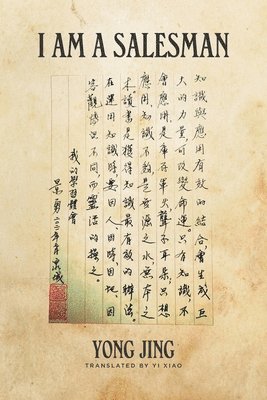 I AM A SALESMAN
知識與應用有效的結合,會生成巨
大的力量可改變命運。只有知識,不
會應用,是庫存軍火聾子耳朵,只想
應用,知識不夠是無源之水無本之
木。讀書是獲得知識最有效的辦法。
在運用知識時要因人、因時、因地、因
客觀情況不同而靈活的之。
我的學習體會
景勇二〇二年月泉城
YONG JING
TRANSLATED BY YI XIAO